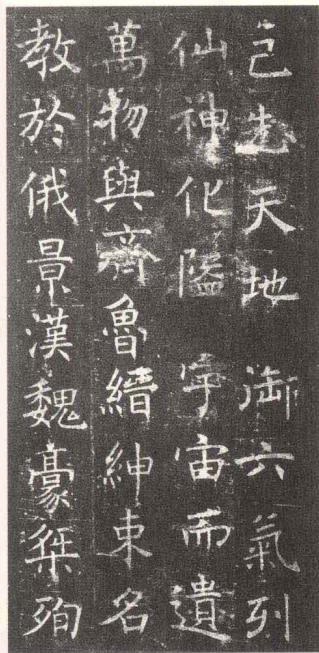 已先天地 御六氣列
仙神化隘 宇宙而遺
萬物與齊魯縉紳束名
教於俄景漢魏豪桀殉